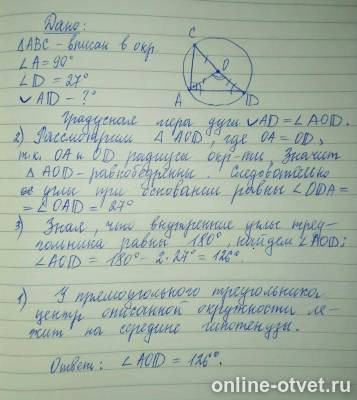 Дано:
△ABC - вписан в окр.
∠A = 90°
∠D = 27°
◡AD - ?
C
O
A
D
Градусная мера дуги ◡AD = ∠AOD.
2) Рассмотрим △ AOD, где OA = OD,
т.к. OA и OD радиусы окр-ти, Значит
△ AOD - равнобедренны. Следовательно
углы при основании равны ∠ODA =
= ∠OAD = 27°
3) Зная, что внутренние углы треу-
гольника равны 180°, найдем ∠AOD:
∠AOD = 180° - 2·27° = 126°.
1) У прямоугольного треугольника
центр описанной окружности ле-
жит на середине гипотенузы.
Ответ: ∠AOD = 126°.
online-otvet.ru